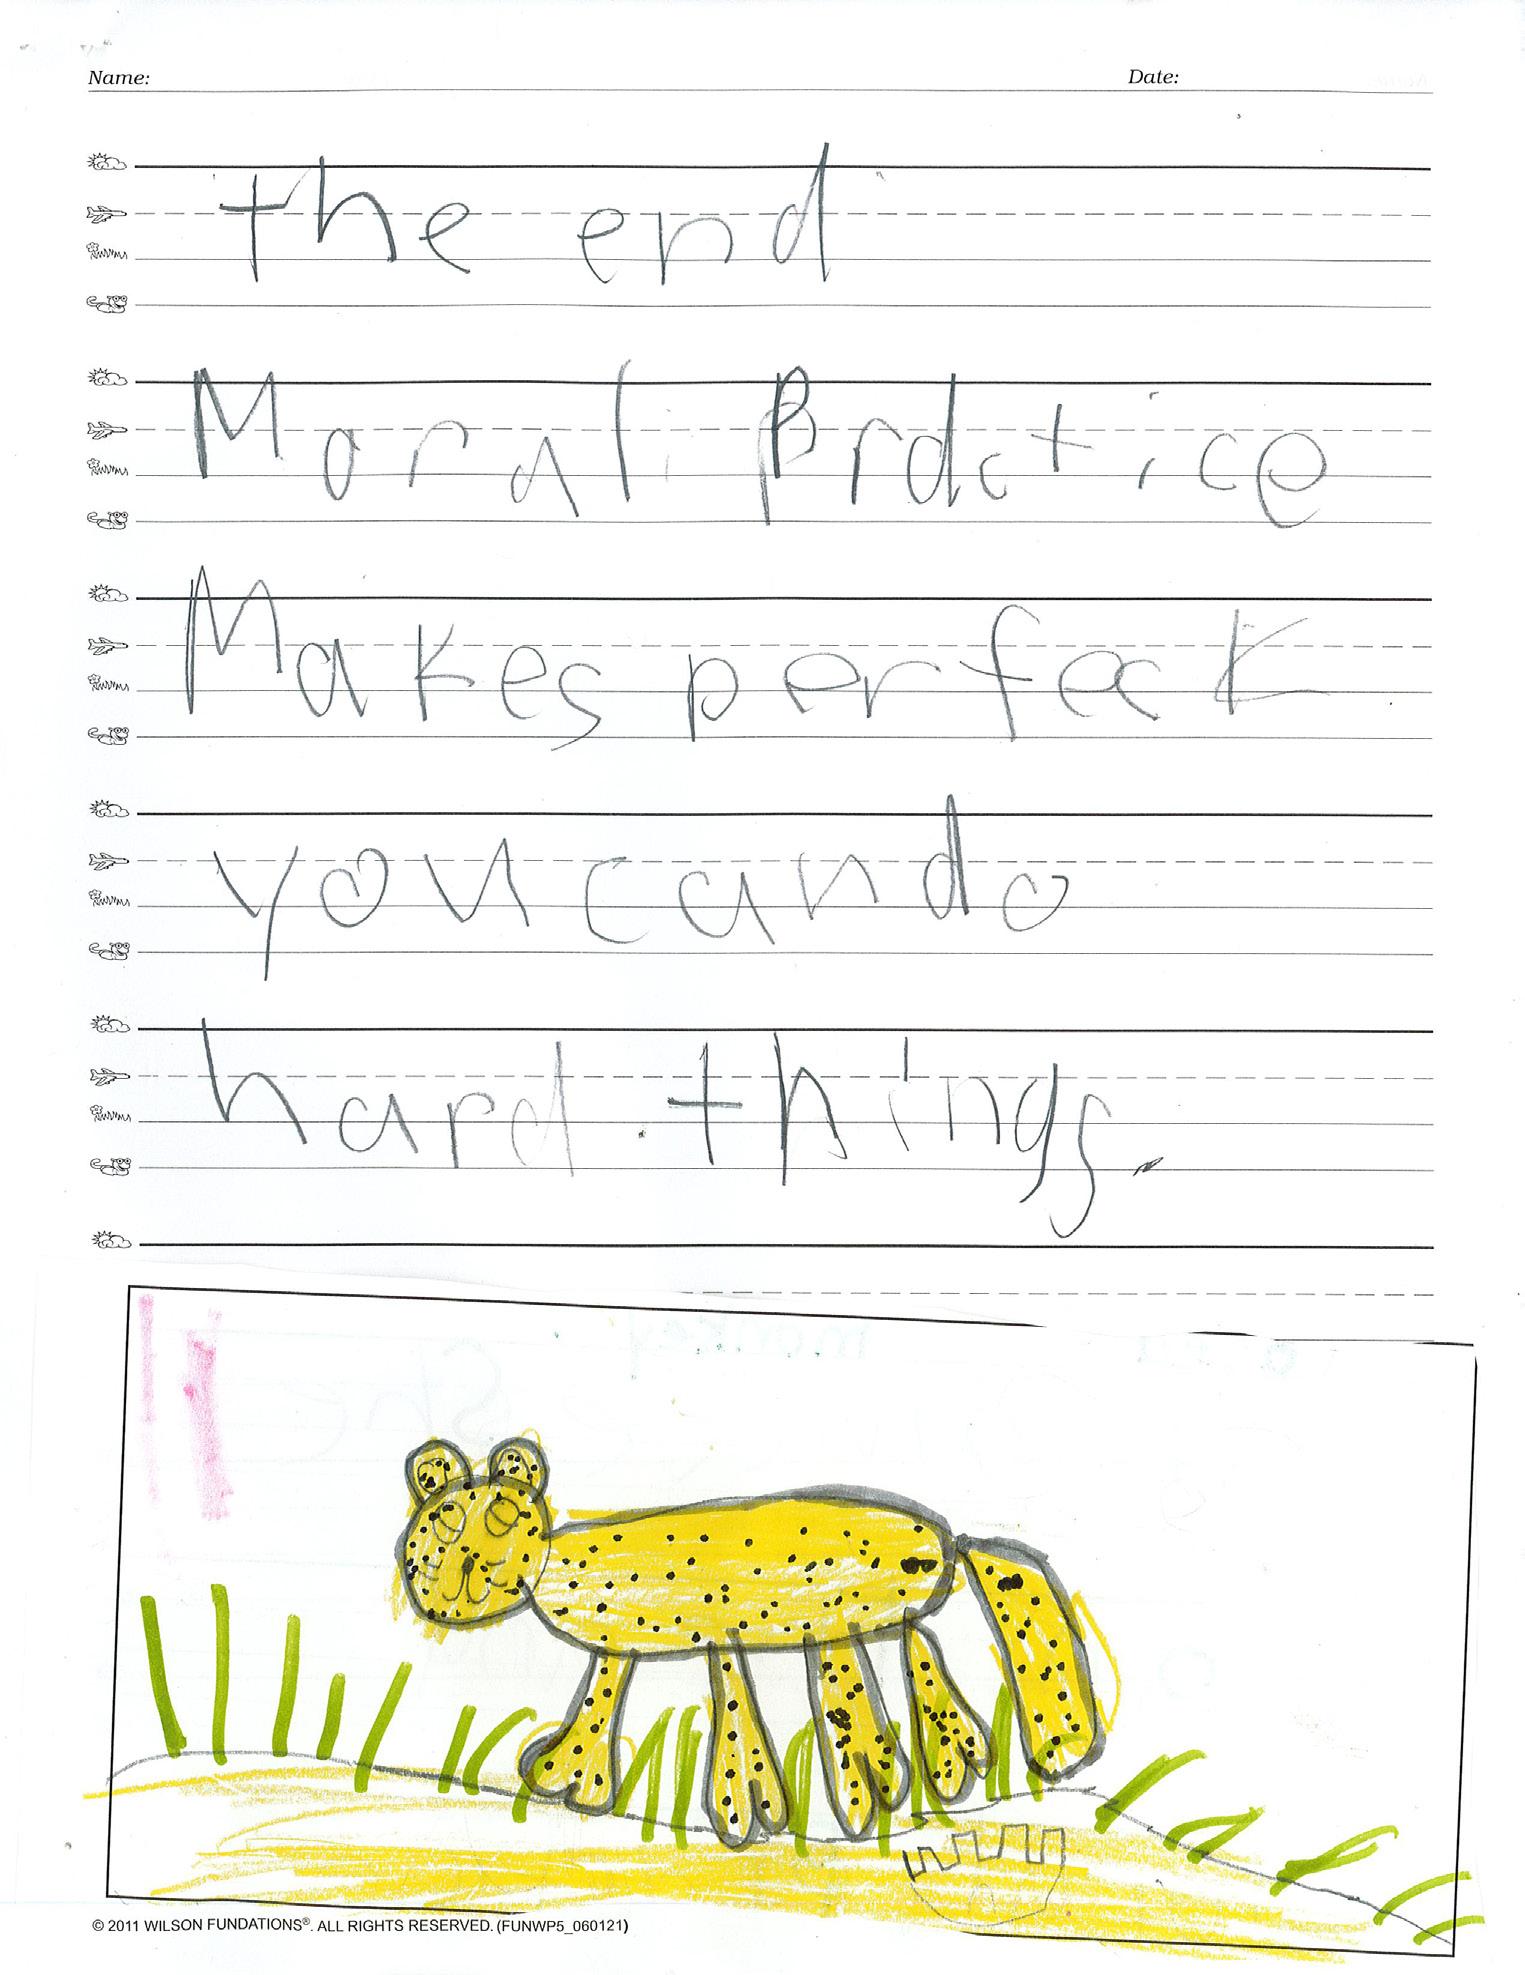 Name: Date:
the end
Moral: Practice
Makes perfeck
you can do
hard things.
monkey
She
© 2011 WILSON FUNDATIONS®. ALL RIGHTS RESERVED. (FUNWP5_060121)